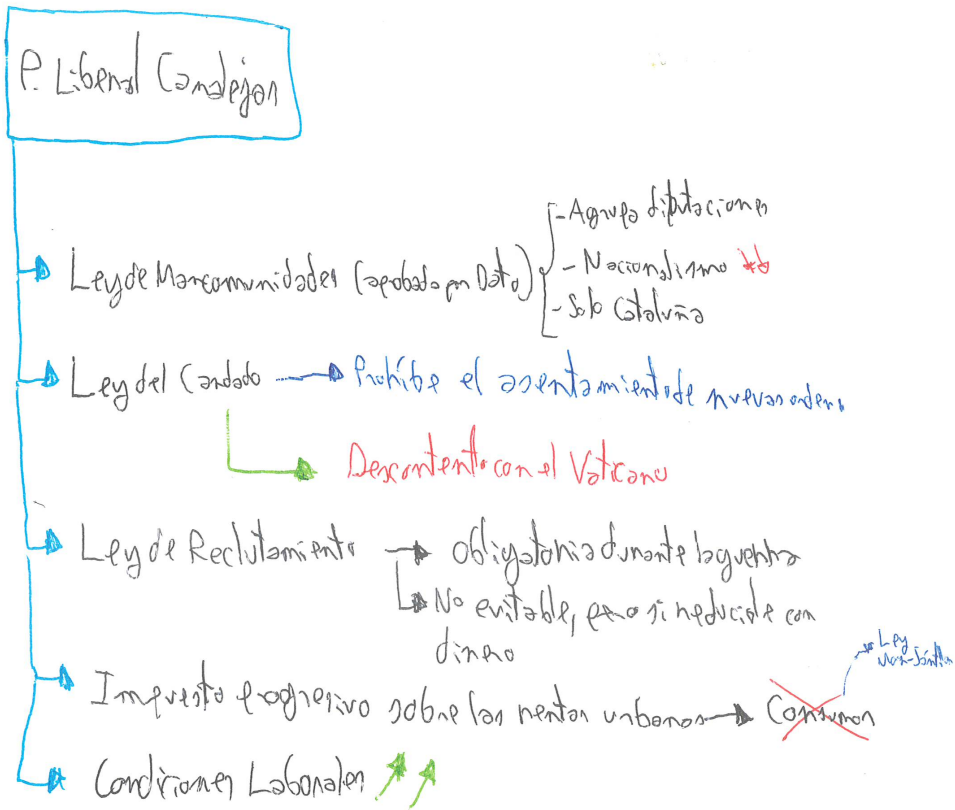 P. Liberal Canalejas
Ley de Mancomunidades (aprobada por Dato)
- Agrupa diputaciones
- Nacionalismo
- Solo Cataluña
Ley del Candado → Prohíbe el asentamiento de nuevas orden.
Descontento con el Vaticano
Ley de Reclutamiento → Obligatoria durante la guerra
No evitable, pero si reducible con
dinero
Ley
Impuesto progresivo sobre las rentas urbanas → Consumos
Condiciones Laborales